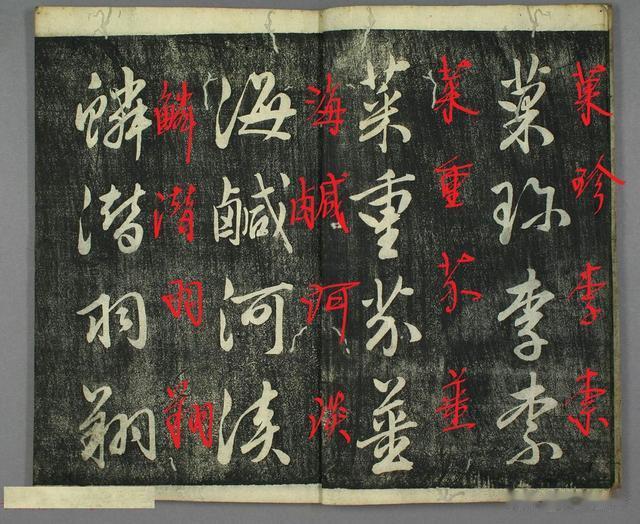 菓珍李柰
菓珍李柰
菜重芥薑
菜重芥薑
海鹹河淡
海鹹河淡
鱗潛羽翔
鱗潛羽翔